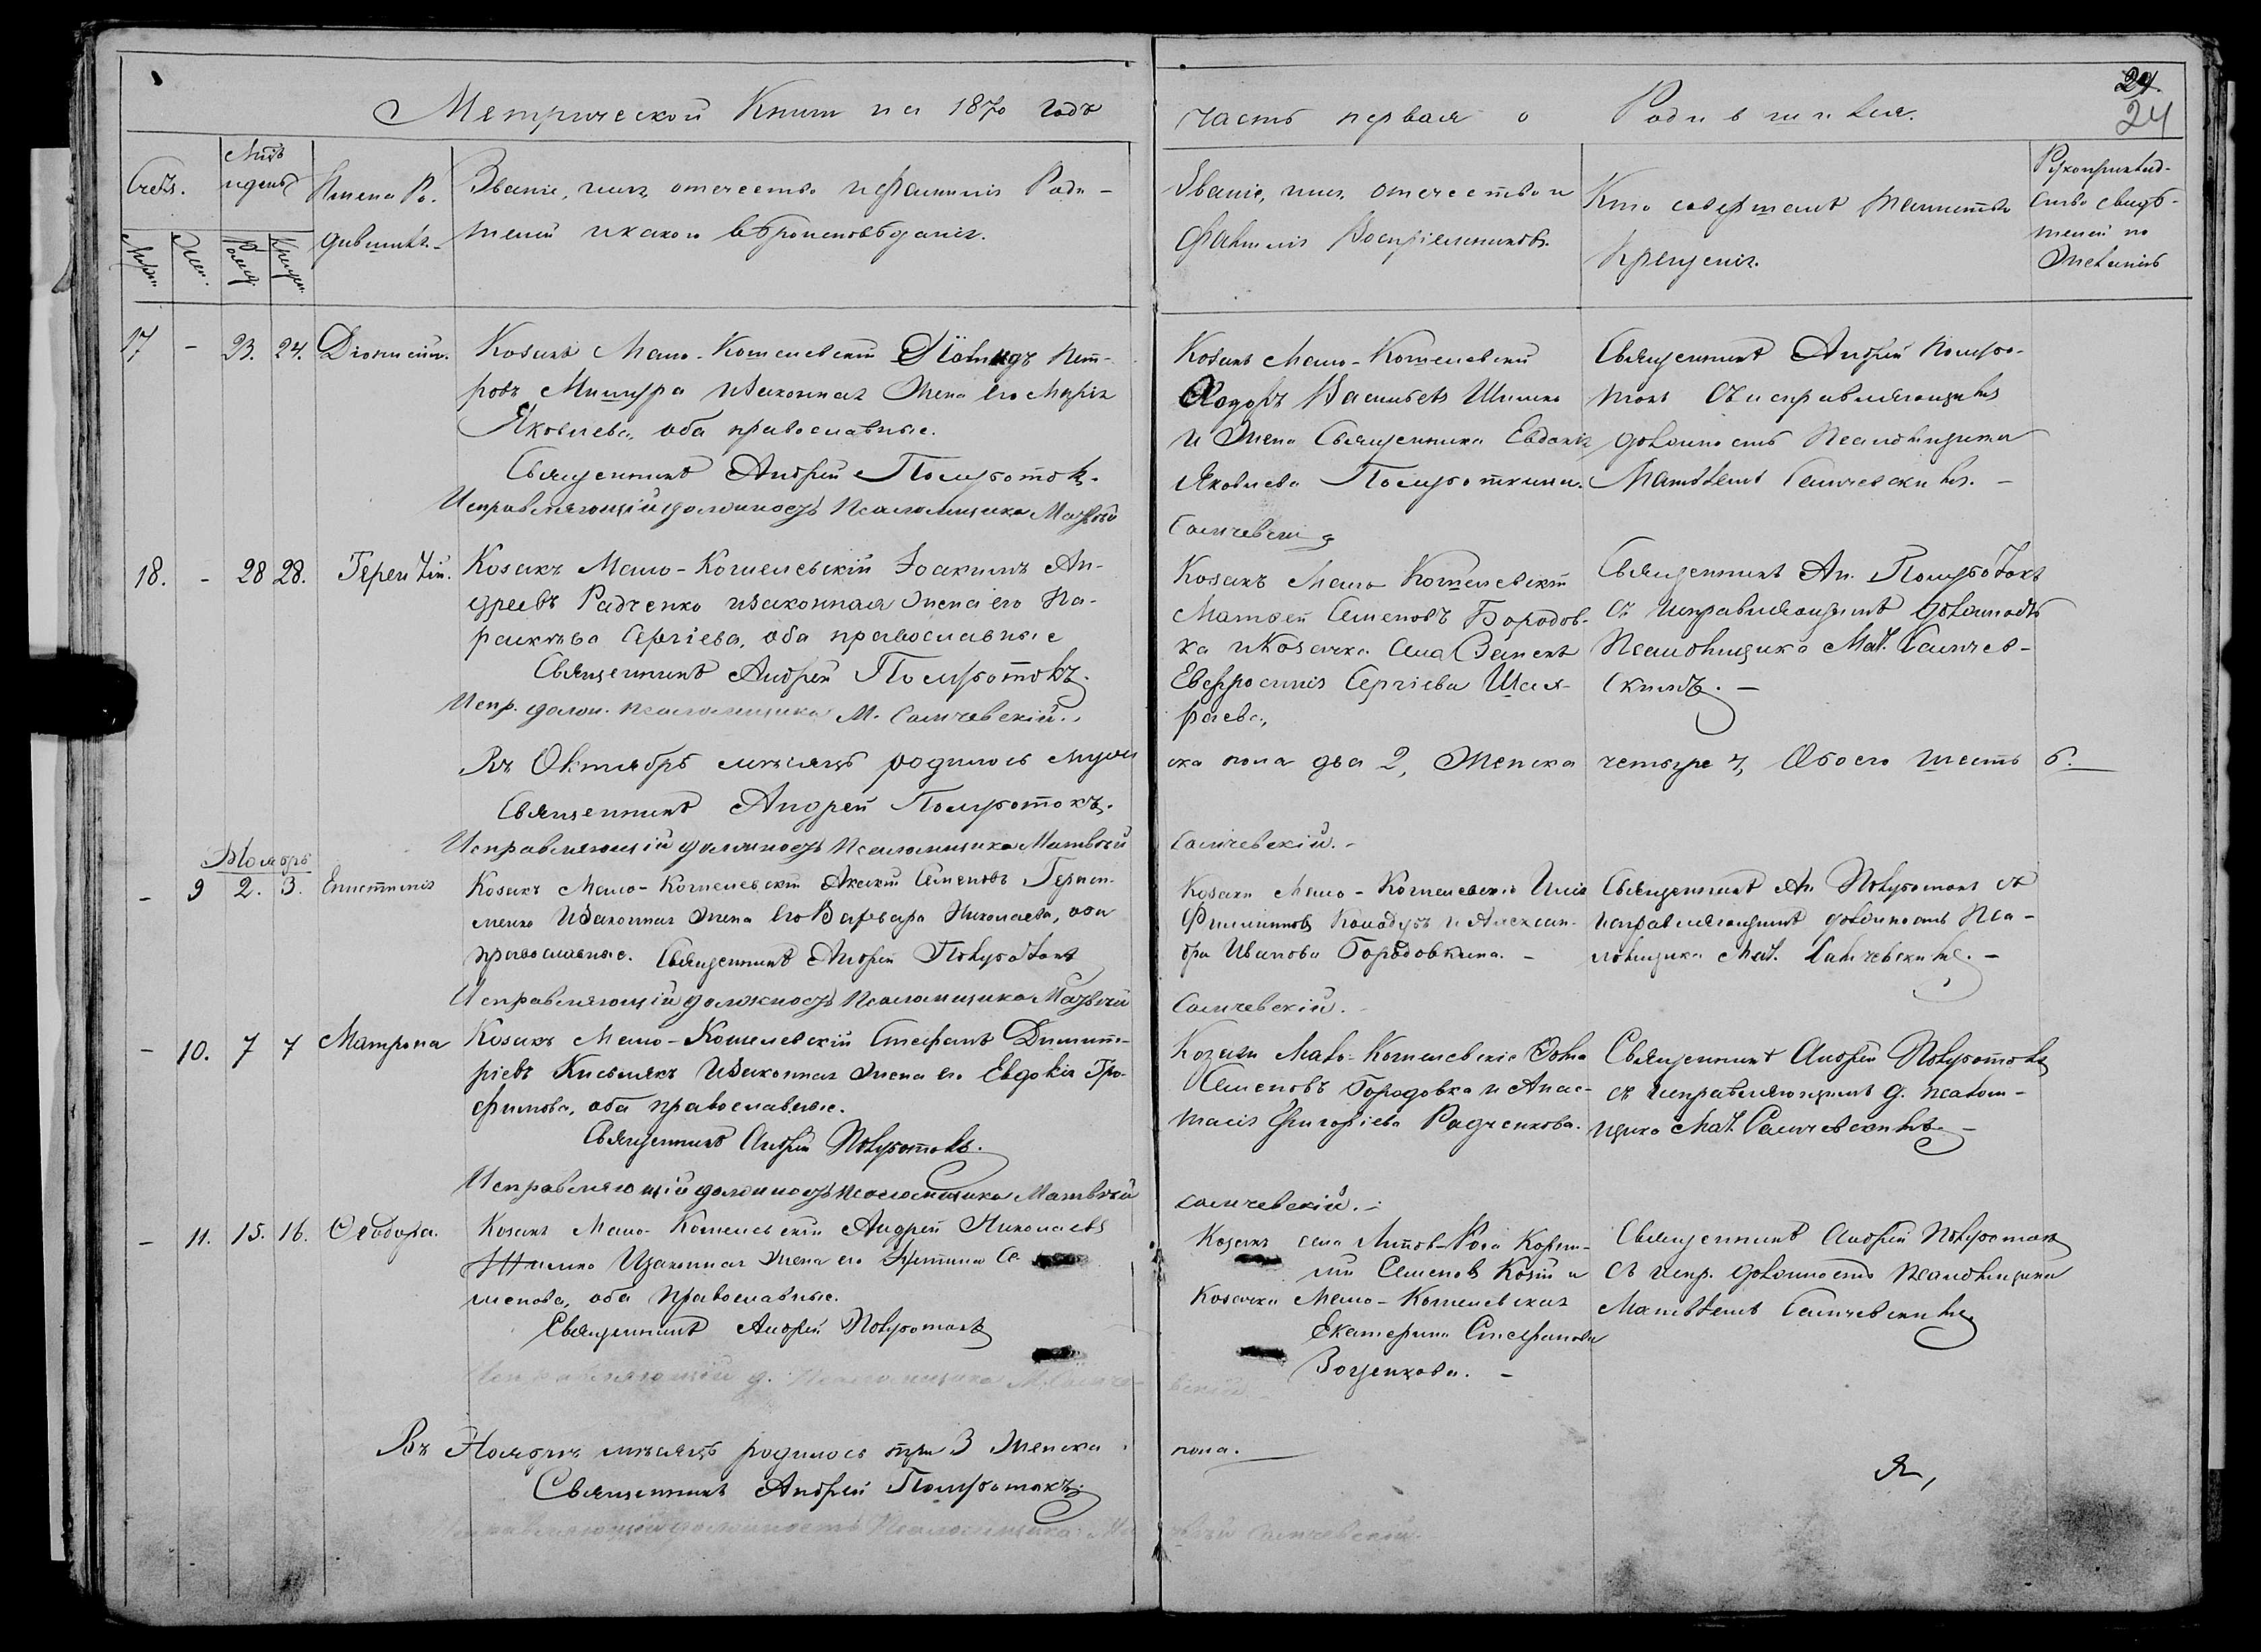 Метрической Книги на 1870 годъ
часть первая о Родившихся.
24
24
Счетъ.
Мѣсъ
и день
Имена Ро-
дивших-
Званіе, имя, отечество и фамилія Роди-
телей и какого вѣроисповѣданія.
Званіе, имя, отечество и
фамилія Воспріемниковъ.
Кто совершалъ таинство
Крещенія.
Рукоприклад-
ство свидѣ-
телей по
желанію
17 - 23. 24. Діонисій.
Козакъ Мало-Кошелевскій Пет-
ровъ и законная жена его Марія
Яковлева, оба православные.
Священникъ Андрей Полуботокъ.
Исправляющій должность Псаломщика Матвѣй
Козакъ Мало-Кошелевскій
Ѳеодоръ Васильевъ Шишко
и жена Священника Евдокія
Яковлева Полуботкина.
Салчевскій
Священникъ Андрей Полубо-
токъ съ исправляющимъ
должность Псаломщика
Матвѣемъ Салчевскимъ. -
18. - 28 28. Терентій.
Козакъ Мало-Кошелевскій Іоакимъ Ан-
дреевъ Радченко и законная жена его Па-
раскева Сергіева, оба православные
Священникъ Андрей Полуботокъ.
Испр. должн. псаломщика М. Салчевскій.
Козакъ Мало Кошелевскій
Матѳей Семеновъ Бородов-
ка и Козачка села
Евфросинія Сергіева
Священникъ Ан. Полуботокъ
съ исправляющимъ должность
Псаломщика Мат. Салчев-
скимъ. -
Въ Октябрѣ мѣсяцѣ родилось мужес
ска пола два 2, женска четыре 4, Обоего шесть 6.
Священникъ Андрей Полуботокъ.
Исправляющій должность Псаломщика Матвѣй
Салчевскій. -
Ноябрь
- 9 2. 3. Епистимія
Козакъ Мало-Кошелевскій Семеновъ
и законная жена его Варвара Николаева, оба
православные. Священникъ Андрей Полуботокъ
Исправляющій должность Псаломщика Матвѣй
Козаки Мало-Кошелевскіе Илія
Филипповъ и Алексан-
дра Иванова Бородовкина. -
Салчевскій.
Священникъ Ан. Полуботокъ съ
исправляющимъ должность Пса-
ломщика Мат. Салчевскимъ. -
- 10. 7 7 Матрона
Козакъ Мало-Кошелевскій Стефанъ Димит-
ріевъ Кисликъ и законная жена его Евдокія Тро-
фимова, оба православные.
Священникъ Андрей Полуботокъ.
Исправляющій должность псаломщика Матвѣй
Козаки Мало-Кошелевскіе Ѳома
Семеновъ Бородовка и Анас-
тасія Григоріева Радченкова.
Салчевскій. -
Священникъ Андрей Полуботокъ
съ исправляющимъ д. псалом-
щика Мат. Салчевскимъ. -
- 11. 15. 16. Ѳеодора.
Козакъ Мало-Кошелевскій Андрей Николаевъ
Шишко и законная жена его Се
менова, оба Православные.
Священникъ Андрей Полуботокъ
Исправляющій д. Псаломщика М. Салче-
Козакъ села
Семеновъ Козій и
Козачка Мало-Кошелевская
Екатерина Стефанова
Воценкова. -
вскій. -
Священникъ Андрей Полуботокъ
съ испр. должность Псаломщика
Матвѣемъ Салчевскимъ
Въ Ноябрѣ мѣсяцѣ родилось три 3 женска
пола.
Священникъ Андрей Полуботокъ
Исправляющій должность Псаломщика Мат
вѣй Салчевскій.